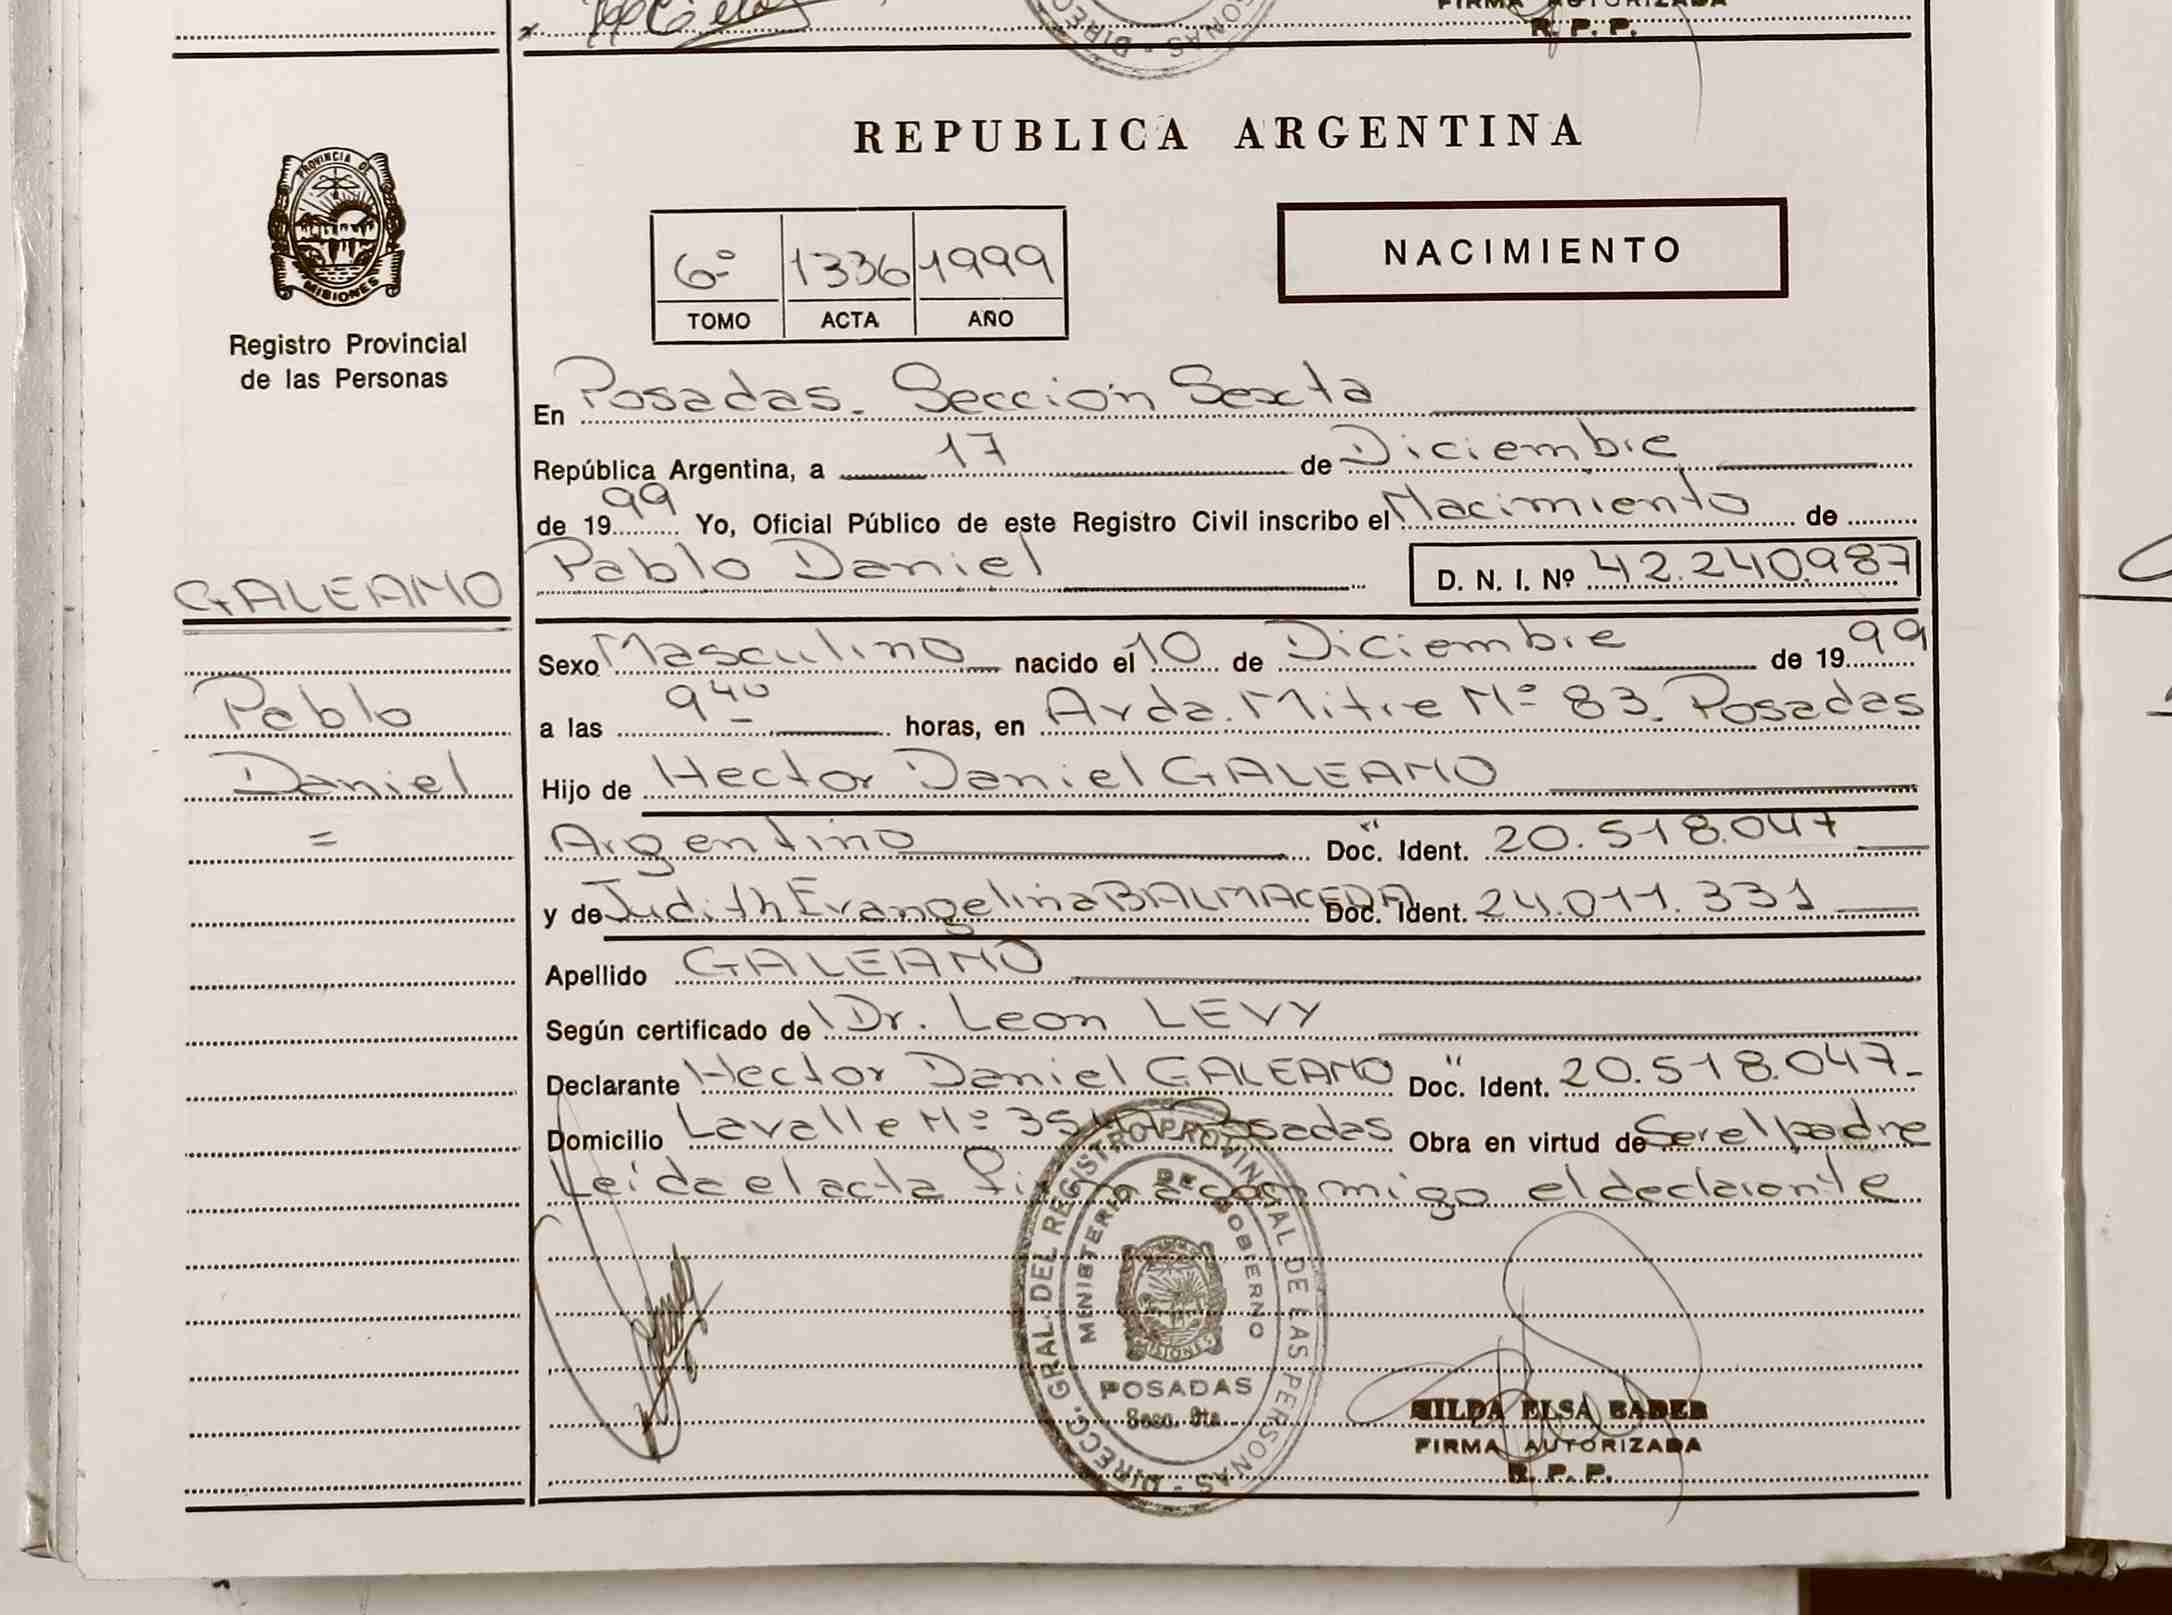 FIRMA AUTORIZADA
R. P. P.
PROVINCIA DE
MISIONES
Registro Provincial
de las Personas
REPUBLICA ARGENTINA
6º 1336 1999
TOMO ACTA AÑO
NACIMIENTO
En Posadas. Sección Sexta
República Argentina, a 17 de Diciembre
de 1999 Yo, Oficial Público de este Registro Civil inscribo el Nacimiento de
GALEANO
Pablo
Daniel
=
Pablo Daniel D. N. I. Nº 42.240.987
Sexo Masculino nacido el 10 de Diciembre de 1999
a las 9 40 horas, en Avda. Mitre Nº 83. Posadas
Hijo de Hector Daniel GALEANO
Argentino Doc. Ident. 20.518.047
y de Judith Evangelina BALMACEDA Doc. Ident. 24.011.331
Apellido GALEANO
Según certificado de Dr. Leon LEVY
Declarante Hector Daniel GALEANO Doc. Ident. 20.518.047-
Domicilio Lavalle Nº Posadas Obra en virtud de Ser el padre
Leída el acta firma conmigo el declarante
DIRECC. GRAL. DEL REGISTRO PROVINCIAL DE LAS PERSONAS
MINISTERIO DE GOBIERNO
MISIONES
POSADAS
Secc. 6ta.
HILDA ELSA BADER
FIRMA AUTORIZADA
R. P. P.